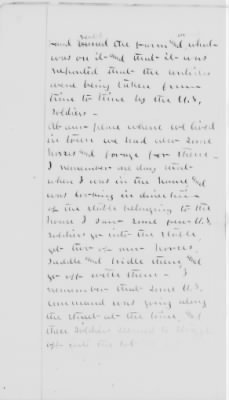 and burned the barn and what
was on it and that it was
reported that the articles
were being taken from
time to time by the U.S.
Soldiers –
At our place where we lived
in town we had also some
horses and forage for them.
I remember one day that
when I was in the house and
was looking in direction
of the stable belonging to the
house I saw some few U.S.
Soldiers go into the stable,
get two of our horses,
saddle and bridle them, and
go off with them – I
remember that some U.S.
command was going along
the street at the time, and
these soldiers seemed to
off with the